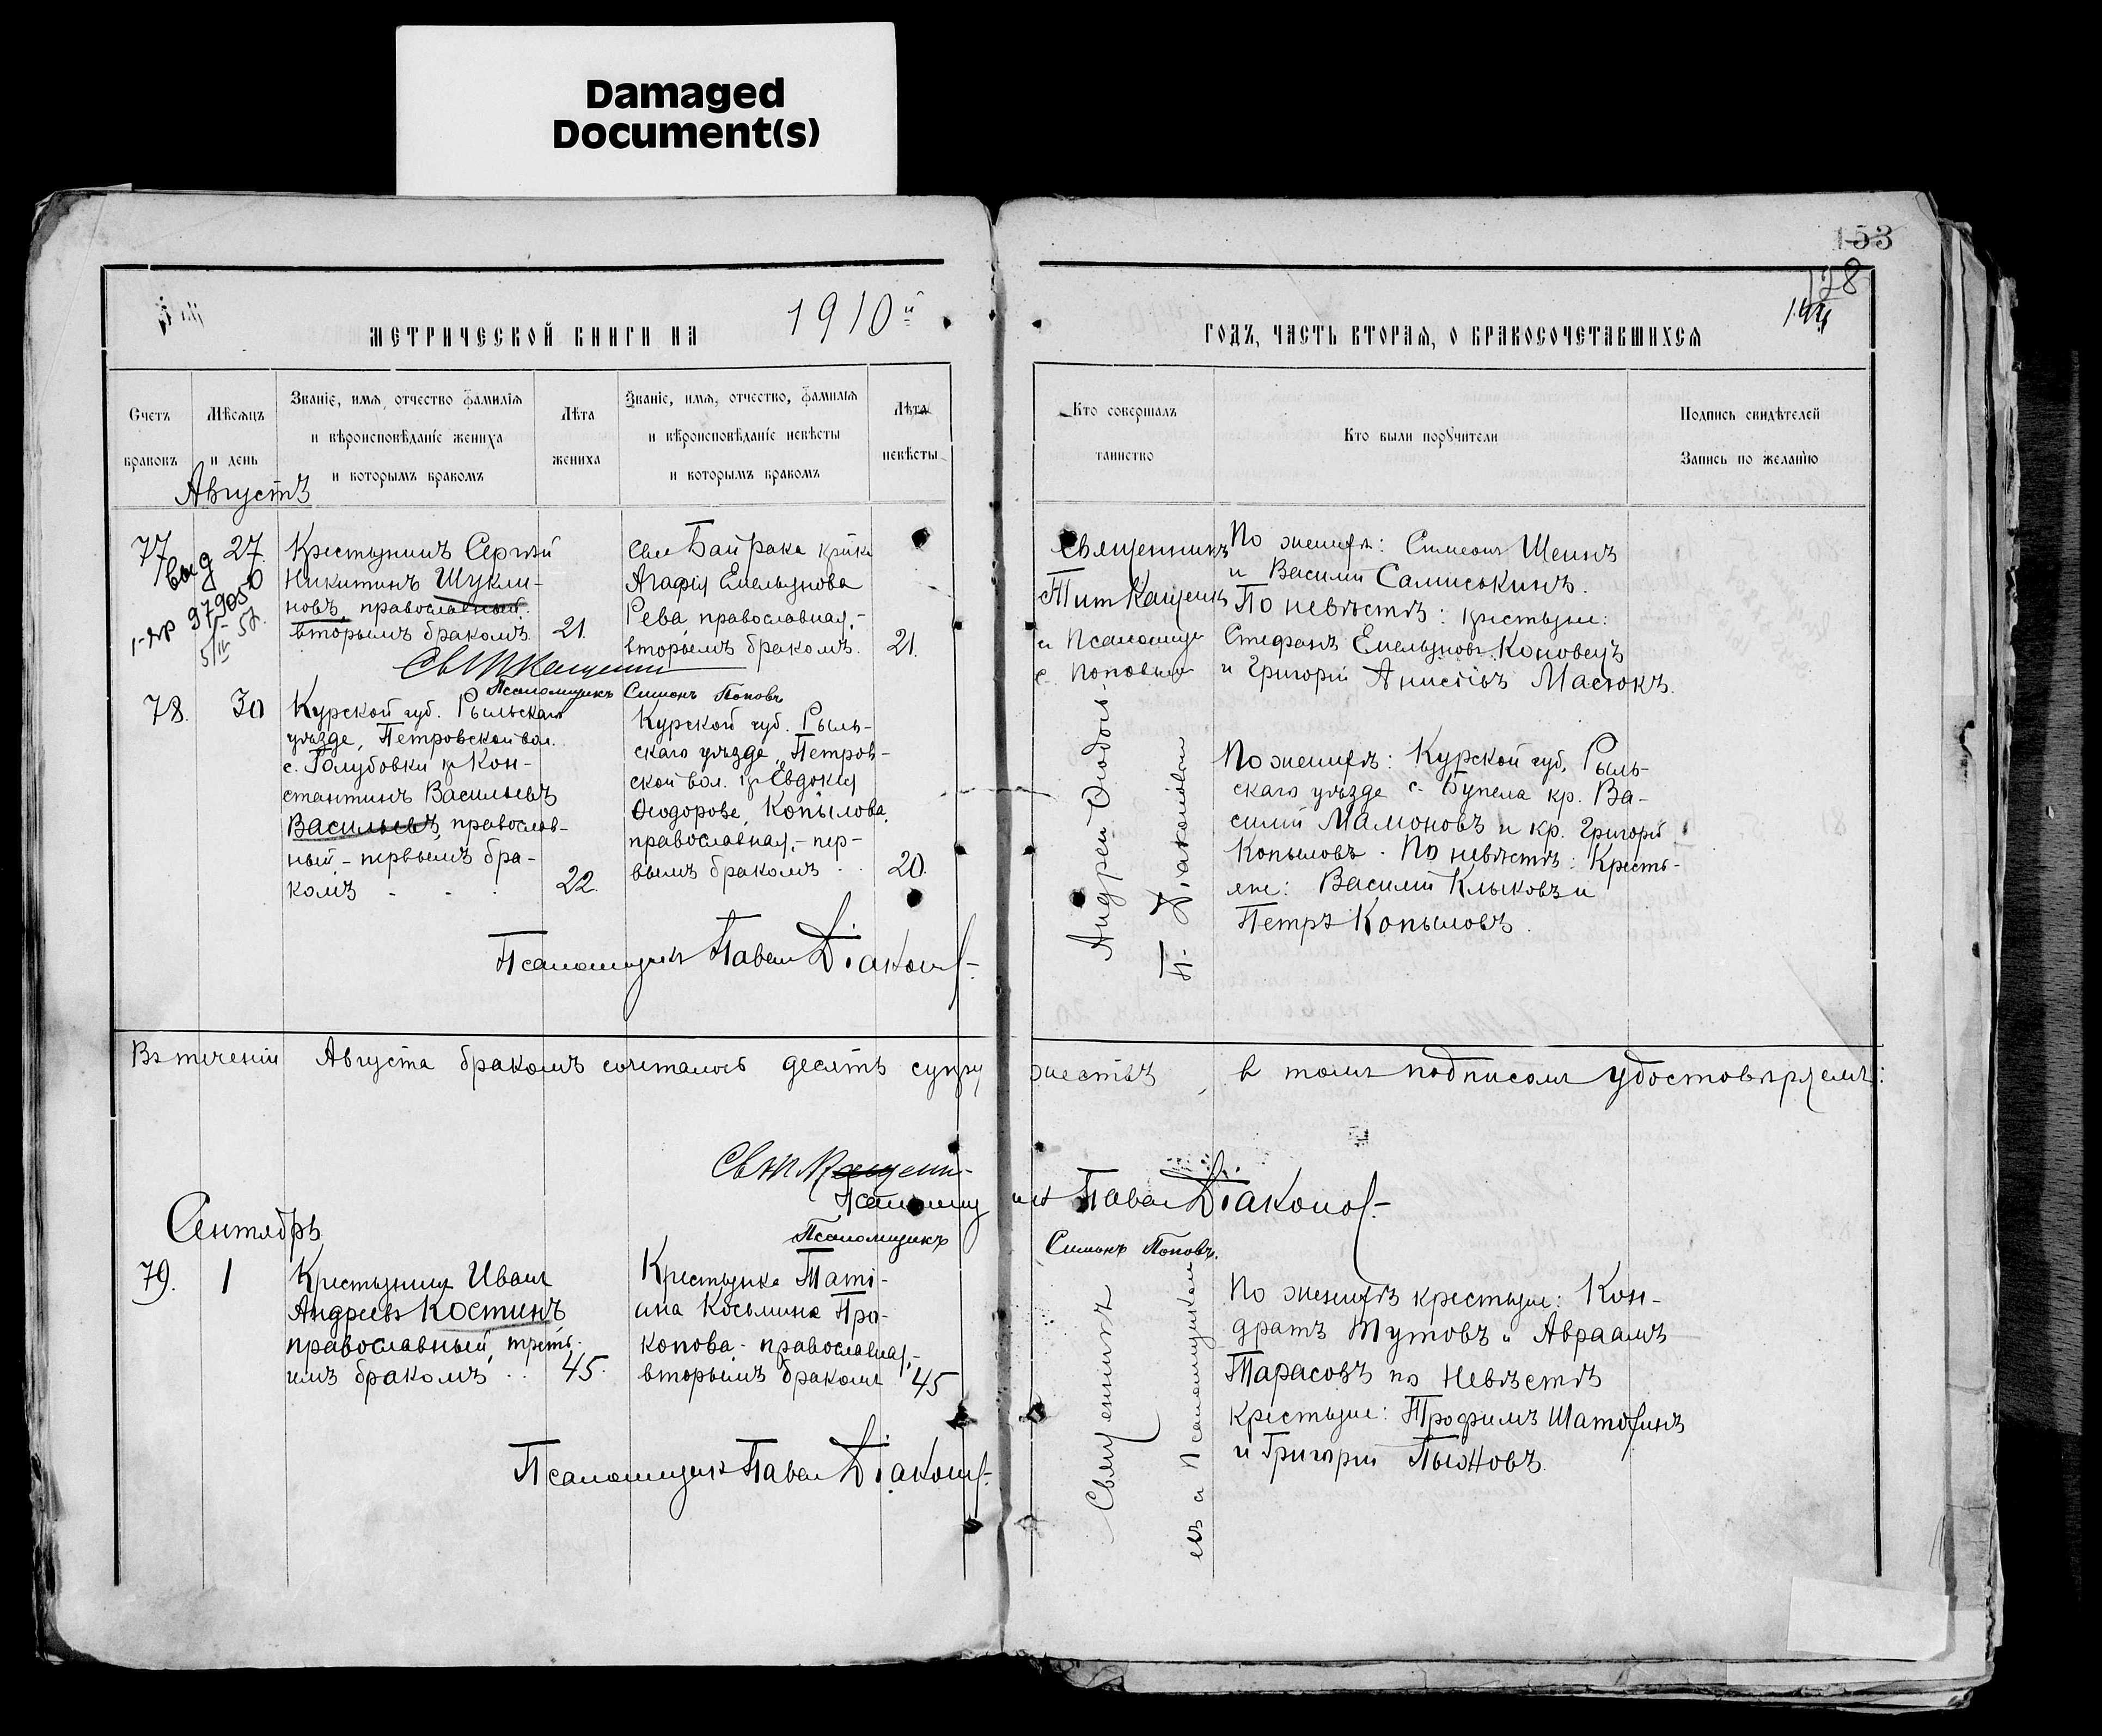 Damaged
Document(s)
153
128
144
МЕТРИЧЕСКОЙ КНИГИ НА 1910й
ГОДЪ, ЧАСТЬ ВТОРАЯ, О БРАКОСОЧЕТАВШИХСЯ
Счетъ
браковъ
Мѣсяцъ
и день
Званіе, имя, отчество фамилія
и вѣроисповѣданіе жениха
и которымъ бракомъ
Лѣта
жениха
Званіе, имя, отчество, фамилія
и вѣроисповѣданіе невѣсты
и которымъ бракомъ
Лѣта
невѣсты
Кто совершалъ
таинство
Кто были поручители
Подпись свидѣтелей
Запись по желанію
Августъ
77
27
выд
979050
Крестьянинъ Сергѣй
Никитинъ Шукли-
новъ, православный.
вторымъ бракомъ.
21.
села Байрака
Агафія Емельянова
Рева православная,-
вторымъ бракомъ.
21.
Священникъ
Тит Кащенко
и Псаломщи
с. Поповым
По женихѣ: Симеонъ Шеинъ
и Василій Самиськинъ.
По невѣстѣ: крестьяне:
Стефанъ Емельяновъ Коновецъ
и Григорій Анисіевъ Масюкъ.
Псаломщикъ Симонъ Поповъ
78.
30
Курской губ. Рыльскаго
уѣзда, Петровской вол.
с. Голубовки кр Кон-
стантинъ Васильевъ
Васильевъ, православ-
ный - первымъ бра-
комъ - - .
22.
Курской губ. Рыль-
скаго уѣзда, Петров-
ской вол. кр Евдокія
Ѳеодорова, Копылова
православная, - пер-
вымъ бракомъ . .
20.
Андрей
П. Діаконовъ
По женихѣ: Курской губ. Рыль-
скаго уѣзда с. Бупела кр. Ва-
силій Мамоновъ и кр. Григорій
Копыловъ. По невѣстѣ: Кресть-
яне: Василій Клыковъ и
Петръ Копыловъ.
Псаломщикъ Павел Діаконов
Въ теченіи Августа бракомъ сочеталось десять супру
жествъ, в томъ подписом удостовѣряемъ:
Псаломщ
ик Павел Діаконов
Псаломщикъ
Симонъ Поповъ.
Сентябрь
79.
1
Крестьянинъ Иванъ
Андреевъ Костинъ
православный, треть-
имъ бракомъ . .
45.
Крестьянка Тати-
ана Косьмина Про-
копова - православная,-
вторымъ бракомъ
45
Священникъ
и Псаломщиком
По женихѣ крестьяне: Кон-
дратъ Тутовъ и Авраамъ
Тарасовъ по Невѣстѣ
крестьяне: Трофимъ Шатохинъ
и Григорій Пыжовъ.
Псаломщик Павел Діаконов